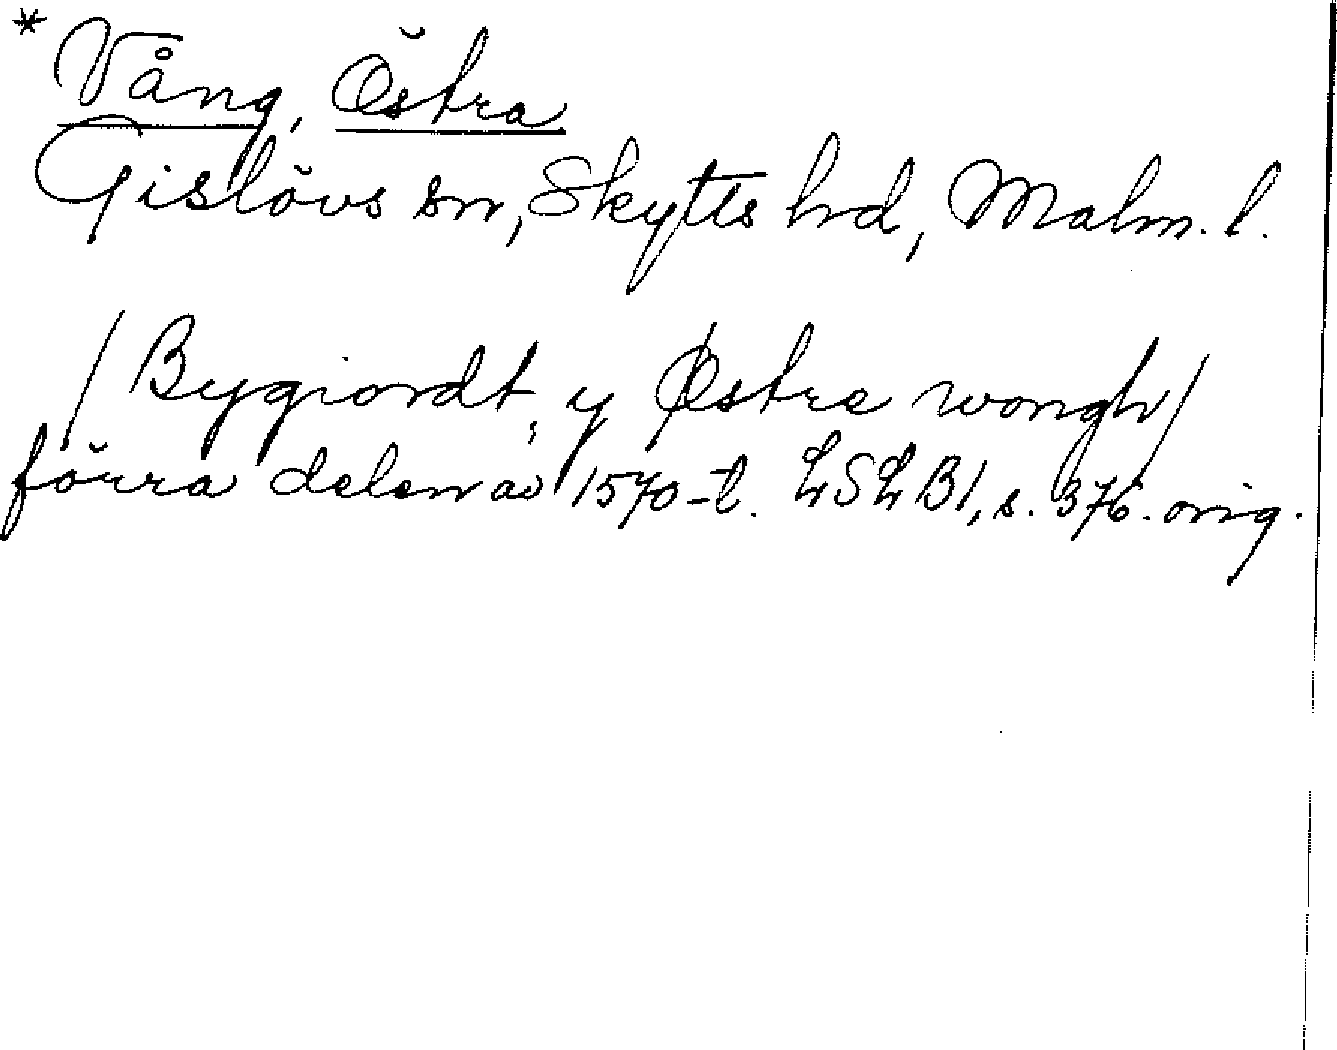 * Vång, Östra
Gislövs sn, Skytts hd, Malm. l.
/Bygiordt, y Østre wongh/
förra delen av 1570-t. LSLB1, s. 376. orig.